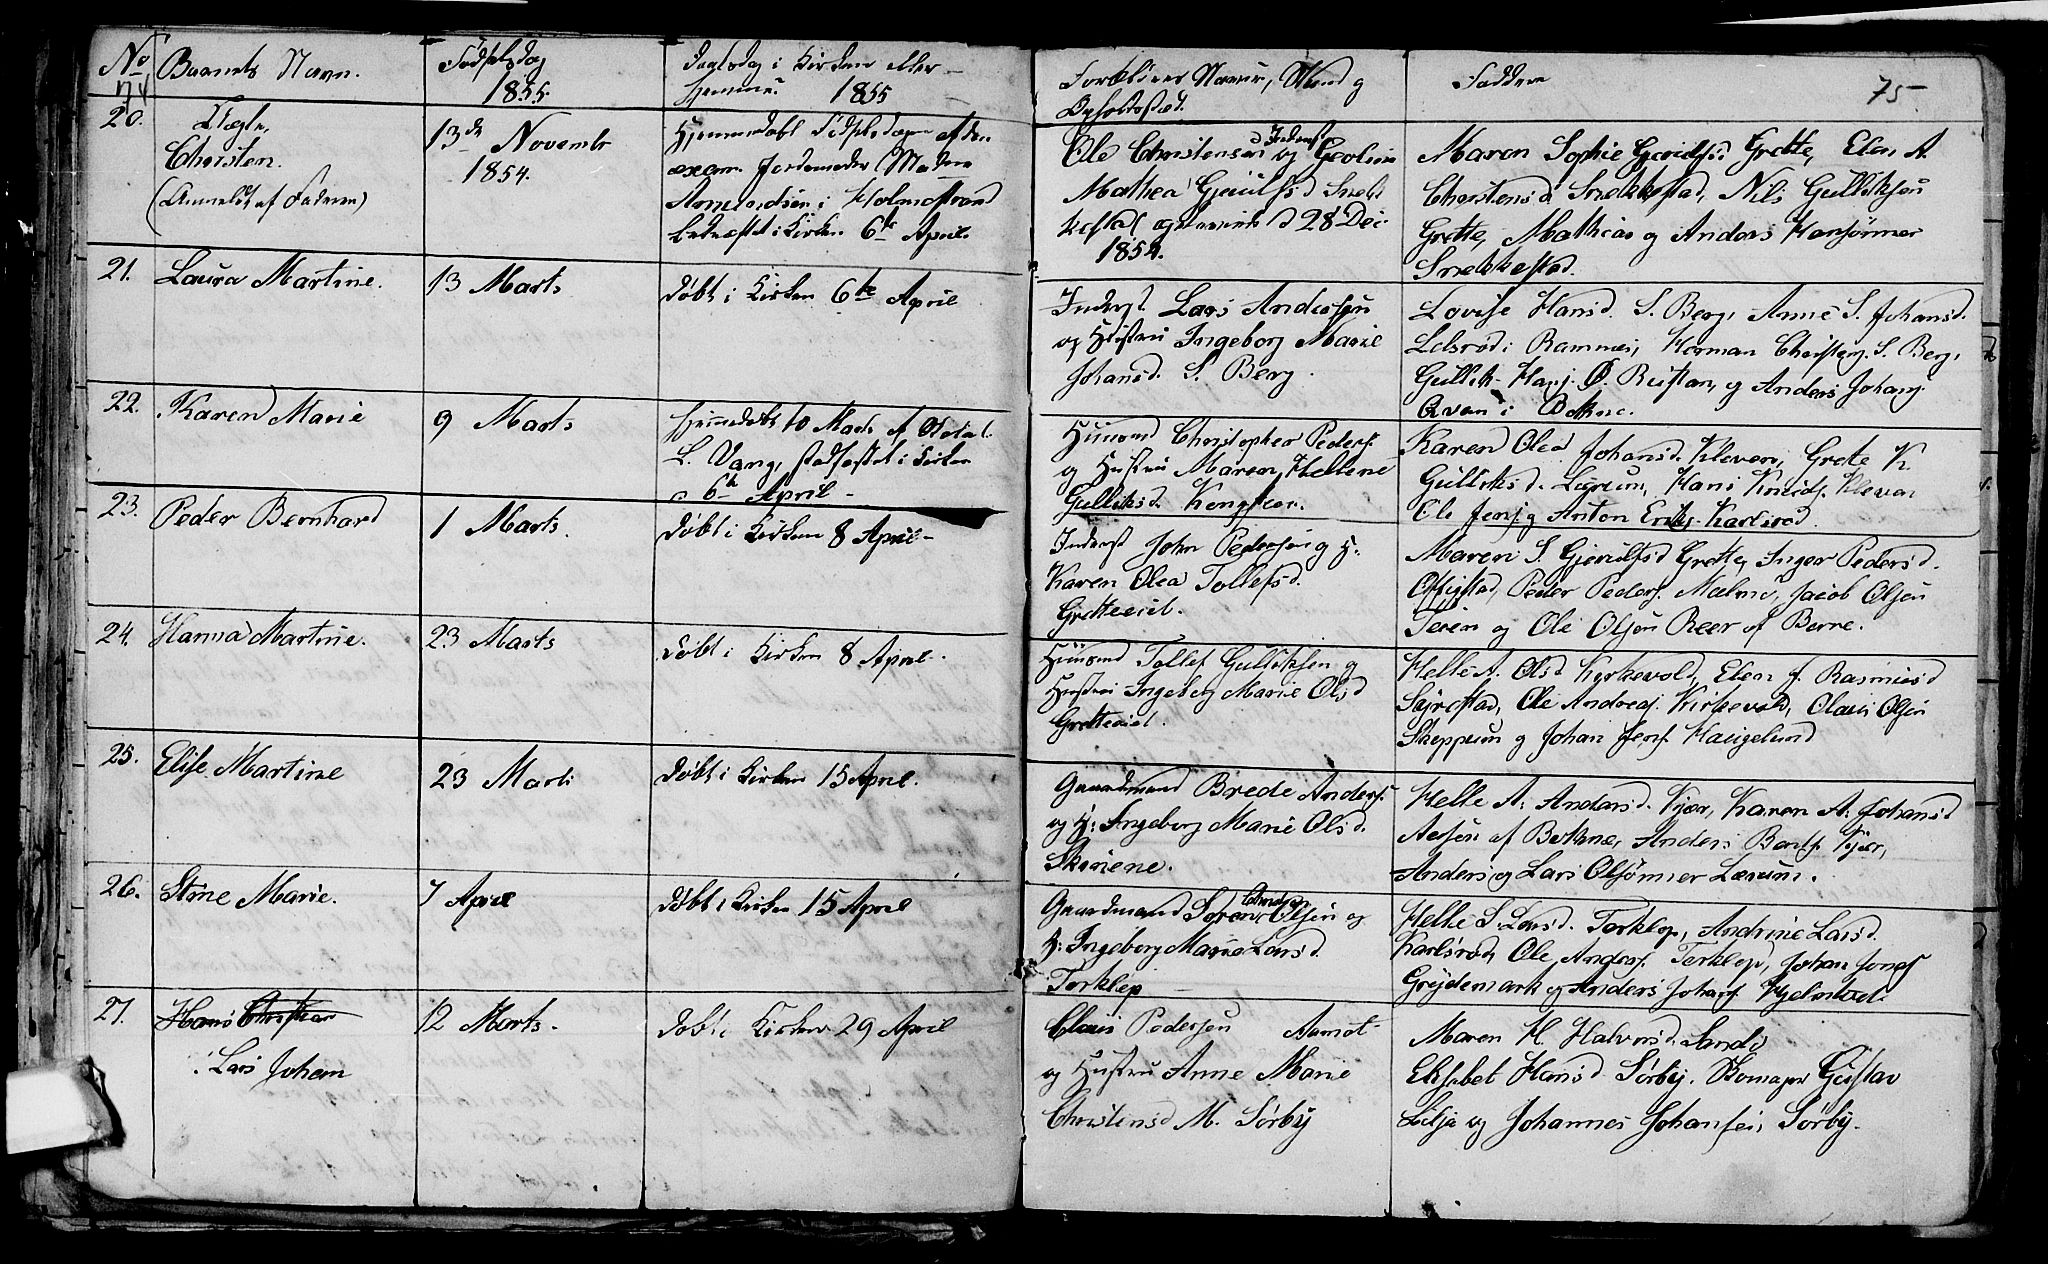 No
74
Barnets Navn.
Fødselsdag
1855.
Daabsdag i Kirken eller
hjemme. 1855
Forældres Navn, Stand og
Opholdssted.
Faddere
75
20.
Ægte,
Christen.
(Anmeldt af Faderen)
13de November
1854.
Hjemmedøbt Fødselsdagen af den
exam. Jordemoder Madam
i Holmestrand
i Kirken 6te April.
Ole Christensen Inderst og
Mathea Gjerulfsd
28 Dec.
1854.
Maren Sophie Gjerulfsd Grette, Elen A.
Christensd Snekkestad, Nils Gulliksen
Grette, Mathias og Anders Hansønner
Snekkestad.
21.
Laura Martine.
13 Marts
døbt i Kirken 6te April
Inderst Lars Andersen
og Hustru Ingeborg Marie
Johansd. S. Berg.
Lovise Hansd. S. Berg, Anne S. Johansd.
i Ramnes, Herman Christens. S. Berg,
Gullik Hansj. Ø. Rustan, og Anders Johansj
Qvan i Botne.
22.
Karen Marie
9 Marts
hjemmedøbt 10 Marts af
L. Vang, stadfæstet i Kirken
6te April -
Huusmd Christopher Peders.
og Hustru Maren Hellene
Gulliksd.
Karen Olea Johansd. Kleven, Grete K.
Gulliksd. Lærum, Hans Knuds. Kleven
Ole Jens. og Anton Eriks. Karlsrød.
23.
Peder Bernhard
1 Marts.
døbt i Kirken 8 April -
Inderst John Pedersen og H:
Karen Olea Tollefsd.
Gretteeiet.
Maren S. Gjerulfsd Grette, Inger Pedersd.
Peder Peders. Malmø, Jacob Olsen
og Ole Olsen Reer af Borre.
24.
Hanna Martine.
23 Marts
døbt i Kirken 8 April.
Huusmd Tollef Gulliksen og
Hustru Ingeborg Marie Olsd
Gretteeiet.
Helle A. Olsd Kirkevold, Elen J. Rasmusd
Ole Andreas. Kirkevold, Olaus Olsen
Skoppum og Johan Jens. Haugelund
25.
Elise Martine
23 Marts
døbt i Kirken 15 April.
Gaardmand Brede Anders.
og H: Ingeborg Marie Olsd.
Helle A. Andersd. Kjær, Karen A. Johansd
af Botne, Anders Bents. Kjær,
Anders og Lars Olsønner Lærum.
26.
Stine Marie.
7 April
døbt i Kirken 15 April
Gaardmand Søren Christian Olsen og
H: Ingeborg Marie Larsd.
Torklep
Helle S. Larsd. Torklep, Andrine Larsd.
Karlsrød, Ole Anders. Torklep, Johan Jons.
Grøydemark og Anders Johans.
27.
Hans Christian
Lars Johan
12 Marts.
døbt i Kirken 29 April
Claus Pedersen Aamot
og Hustru Anne Marie
Christensd M. Sørby
Maren H. Halvorsd. Sande
Elisabet Hansd Sørby. Gustav
Lilja og Johannes Johansen, Sørby.